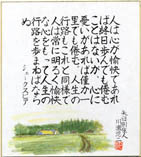 人の心が愉快であれ
ば終日歩んでも倦む
ことはないが、心に
憂いがあれば僅か一
里でも倦む。人生の
行路もこれと同様で
人は常に明るく愉快
な心をもって人生の
行路を歩まねばなら
ぬ
シェークスピア